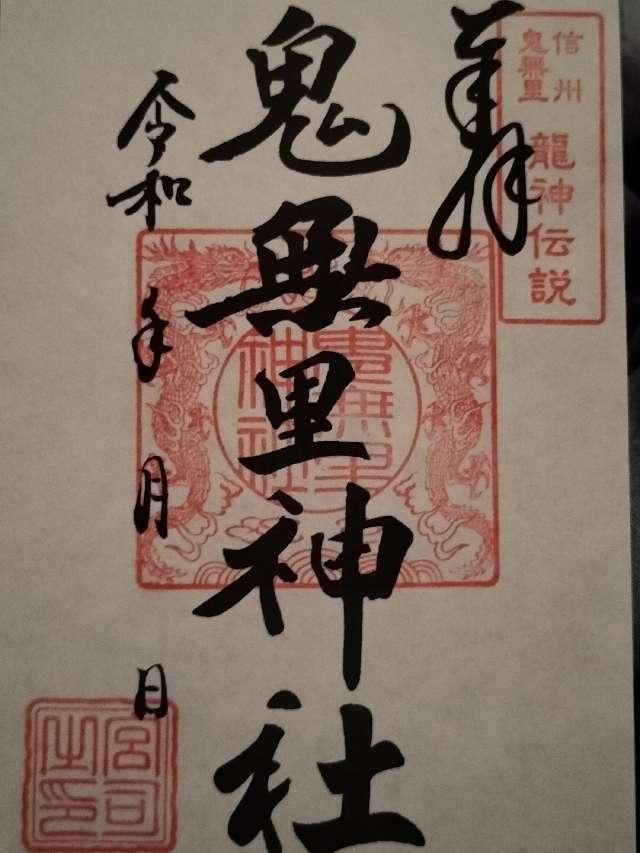 奉拝
信州
鬼無里
龍神伝説
鬼無里神社
鬼無里
神社
令和 年 月 日
宮司
之印